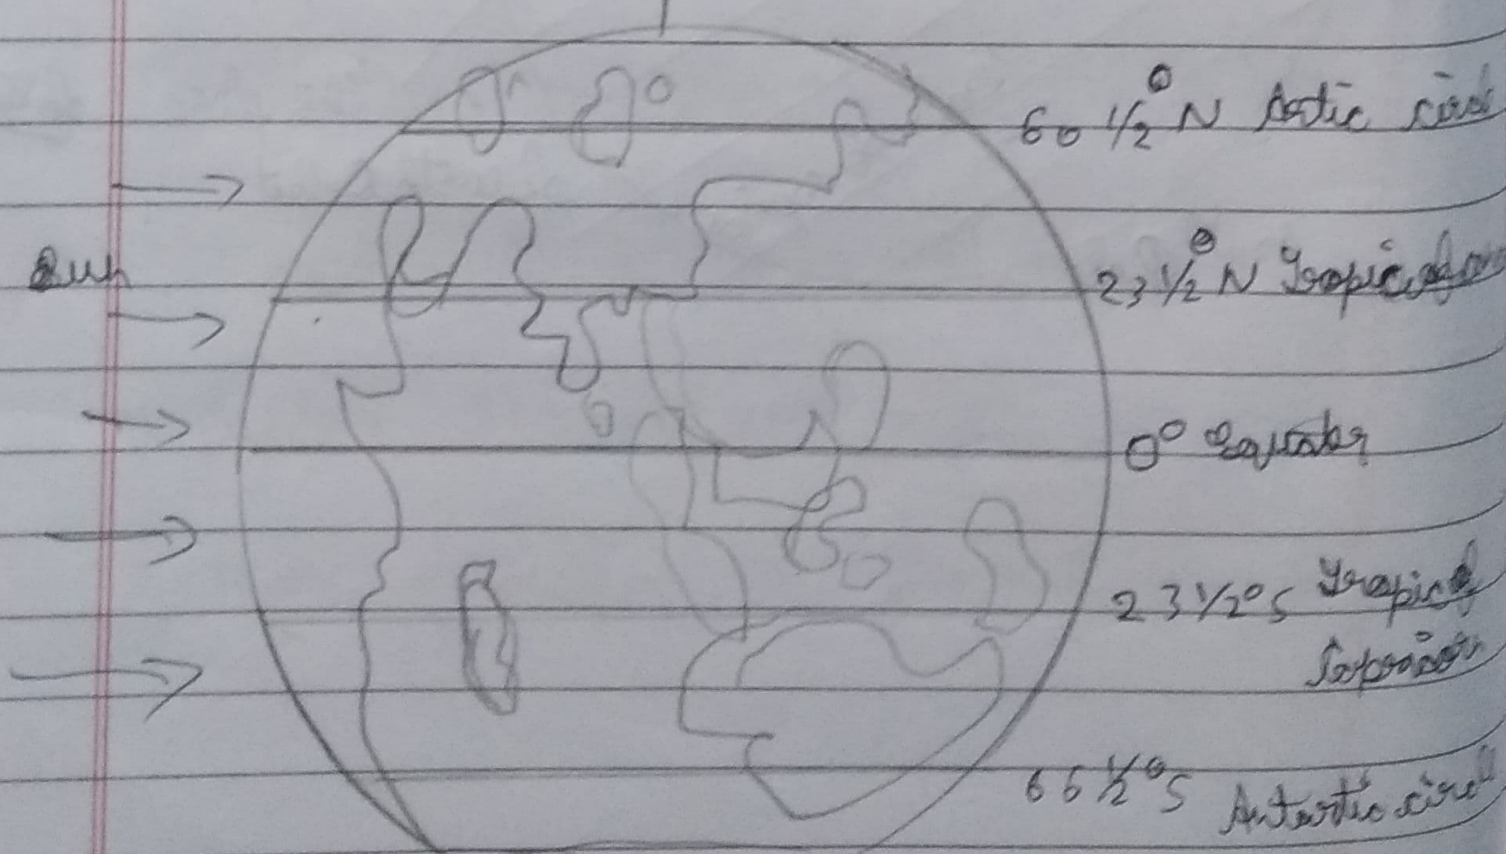 60 1/2° N Actic circl
Sun
23 1/2° N Tropic of
0° Equator
23 1/2° S Tropic of
Capricorn
66 1/2° S Antartic circl